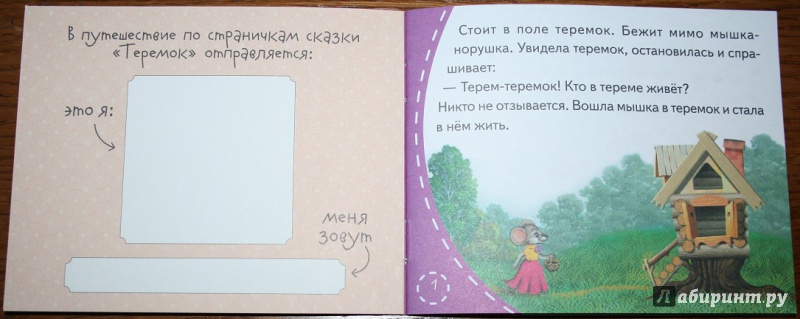 В путешествие по страничкам сказки
«Теремок» отправляется:
это я:
меня
зовут
Стоит в поле теремок. Бежит мимо мышка-
норушка. Увидела теремок, остановилась и спра-
шивает:
— Терем-теремок! Кто в тереме живёт?
Никто не отзывается. Вошла мышка в теремок и стала
в нём жить.
1
Лабиринт.ру